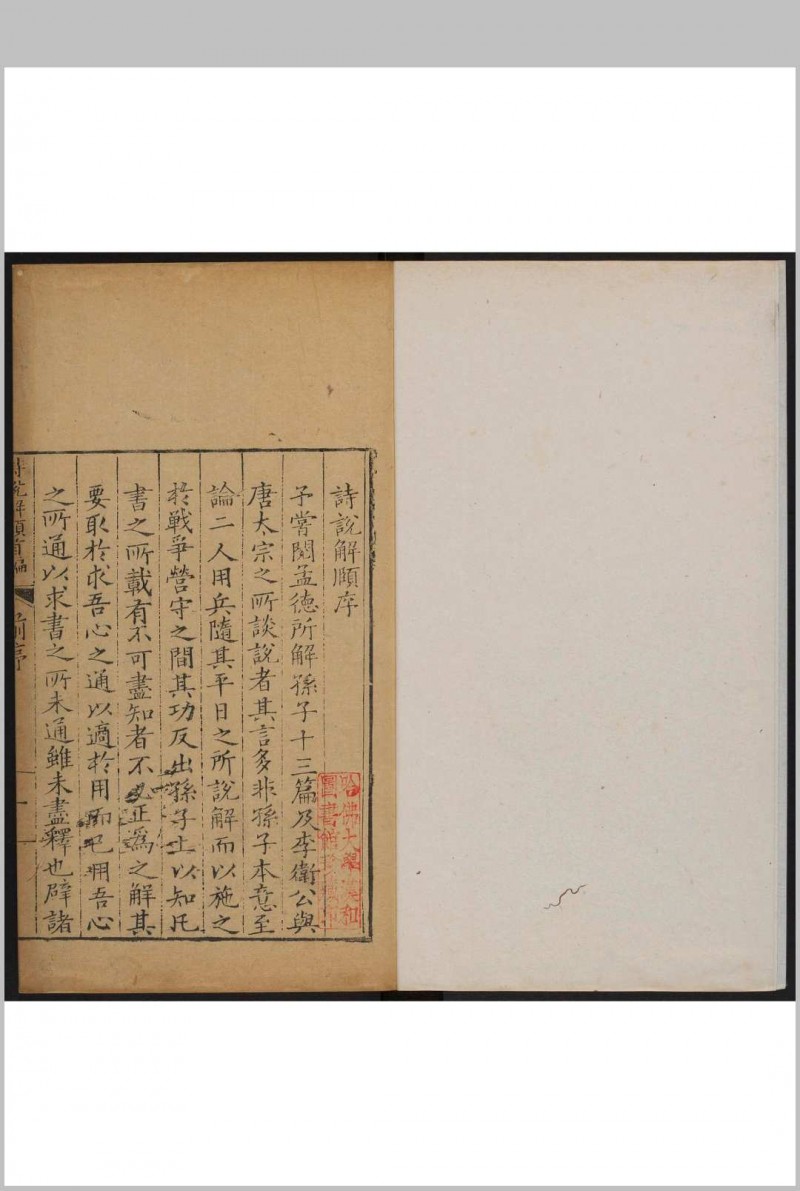 詩說解頤序
予嘗閱孟德所解孫子十三篇及李衛公與
唐太宗之所談說者其言多非孫子本意至
論二人用兵隨其平日之所說解而以施之
於戰爭營守之間其功反出孫子上以知凡
書之所載有不可盡知者不必正爲之解其
要取於求吾心之通以適於用而已用吾心
之所通以求書之所未通雖未盡釋也辟諸
詩說解頤首編
前序
一
哈佛大學漢和
圖書館